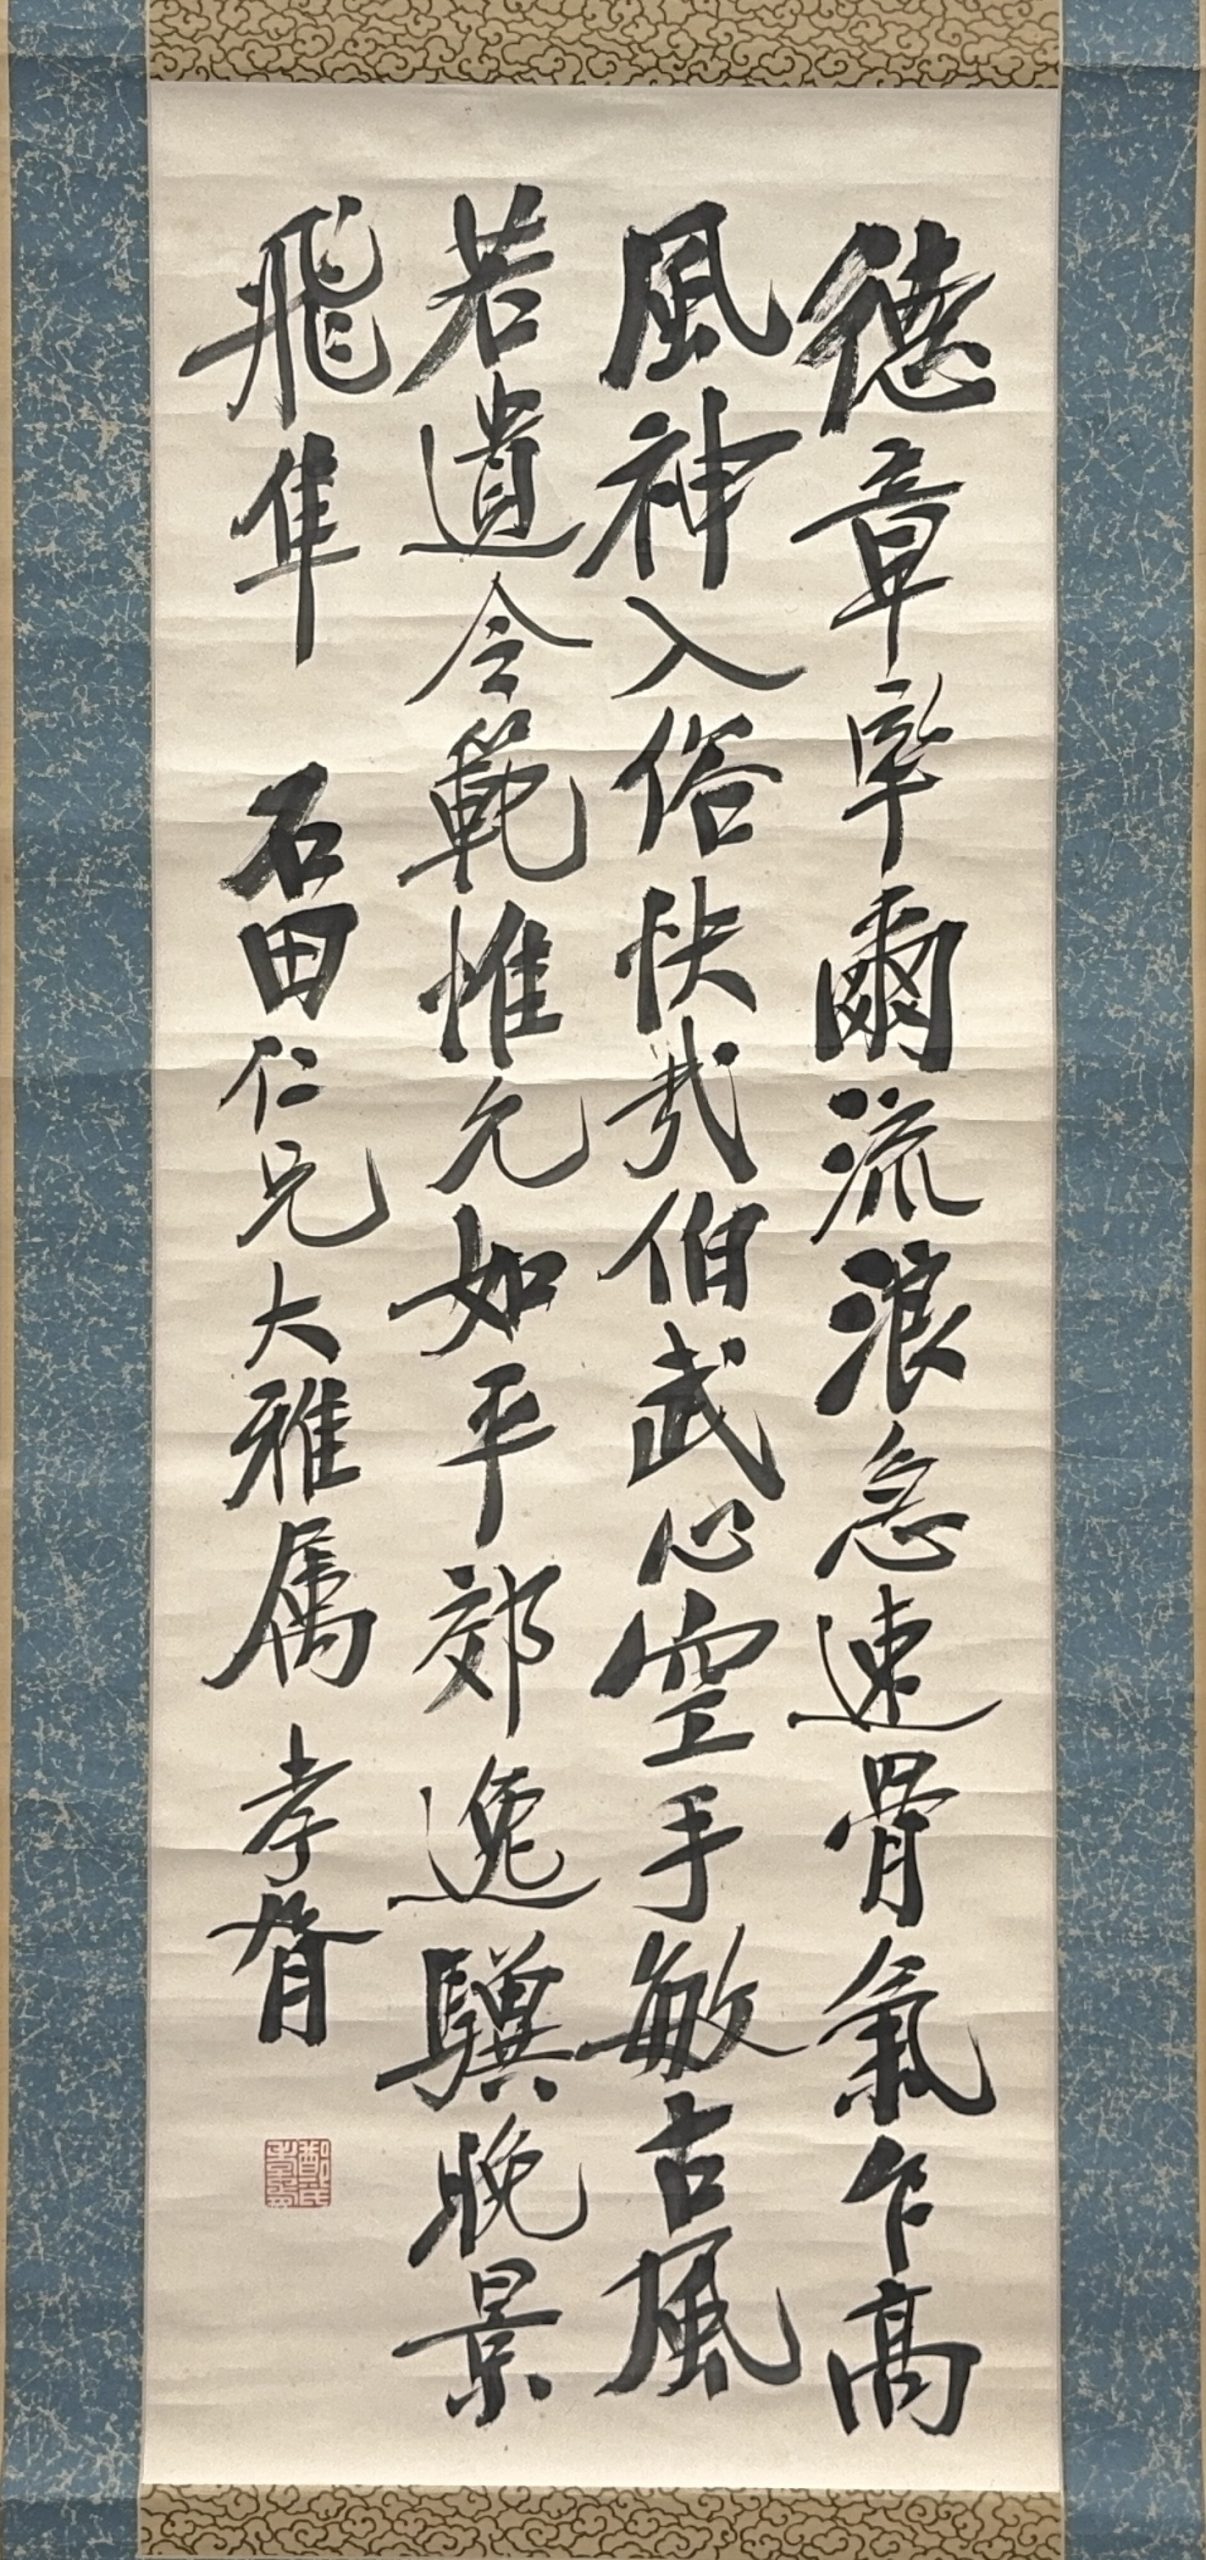 德章率爾流浪急速骨氣乍高
風神入俗快哉伯武心空手敏古風
若遺令範惟允如平郊逸驥晚景
飛隼 石田仁兄大雅属 孝胥
鄭氏孝胥